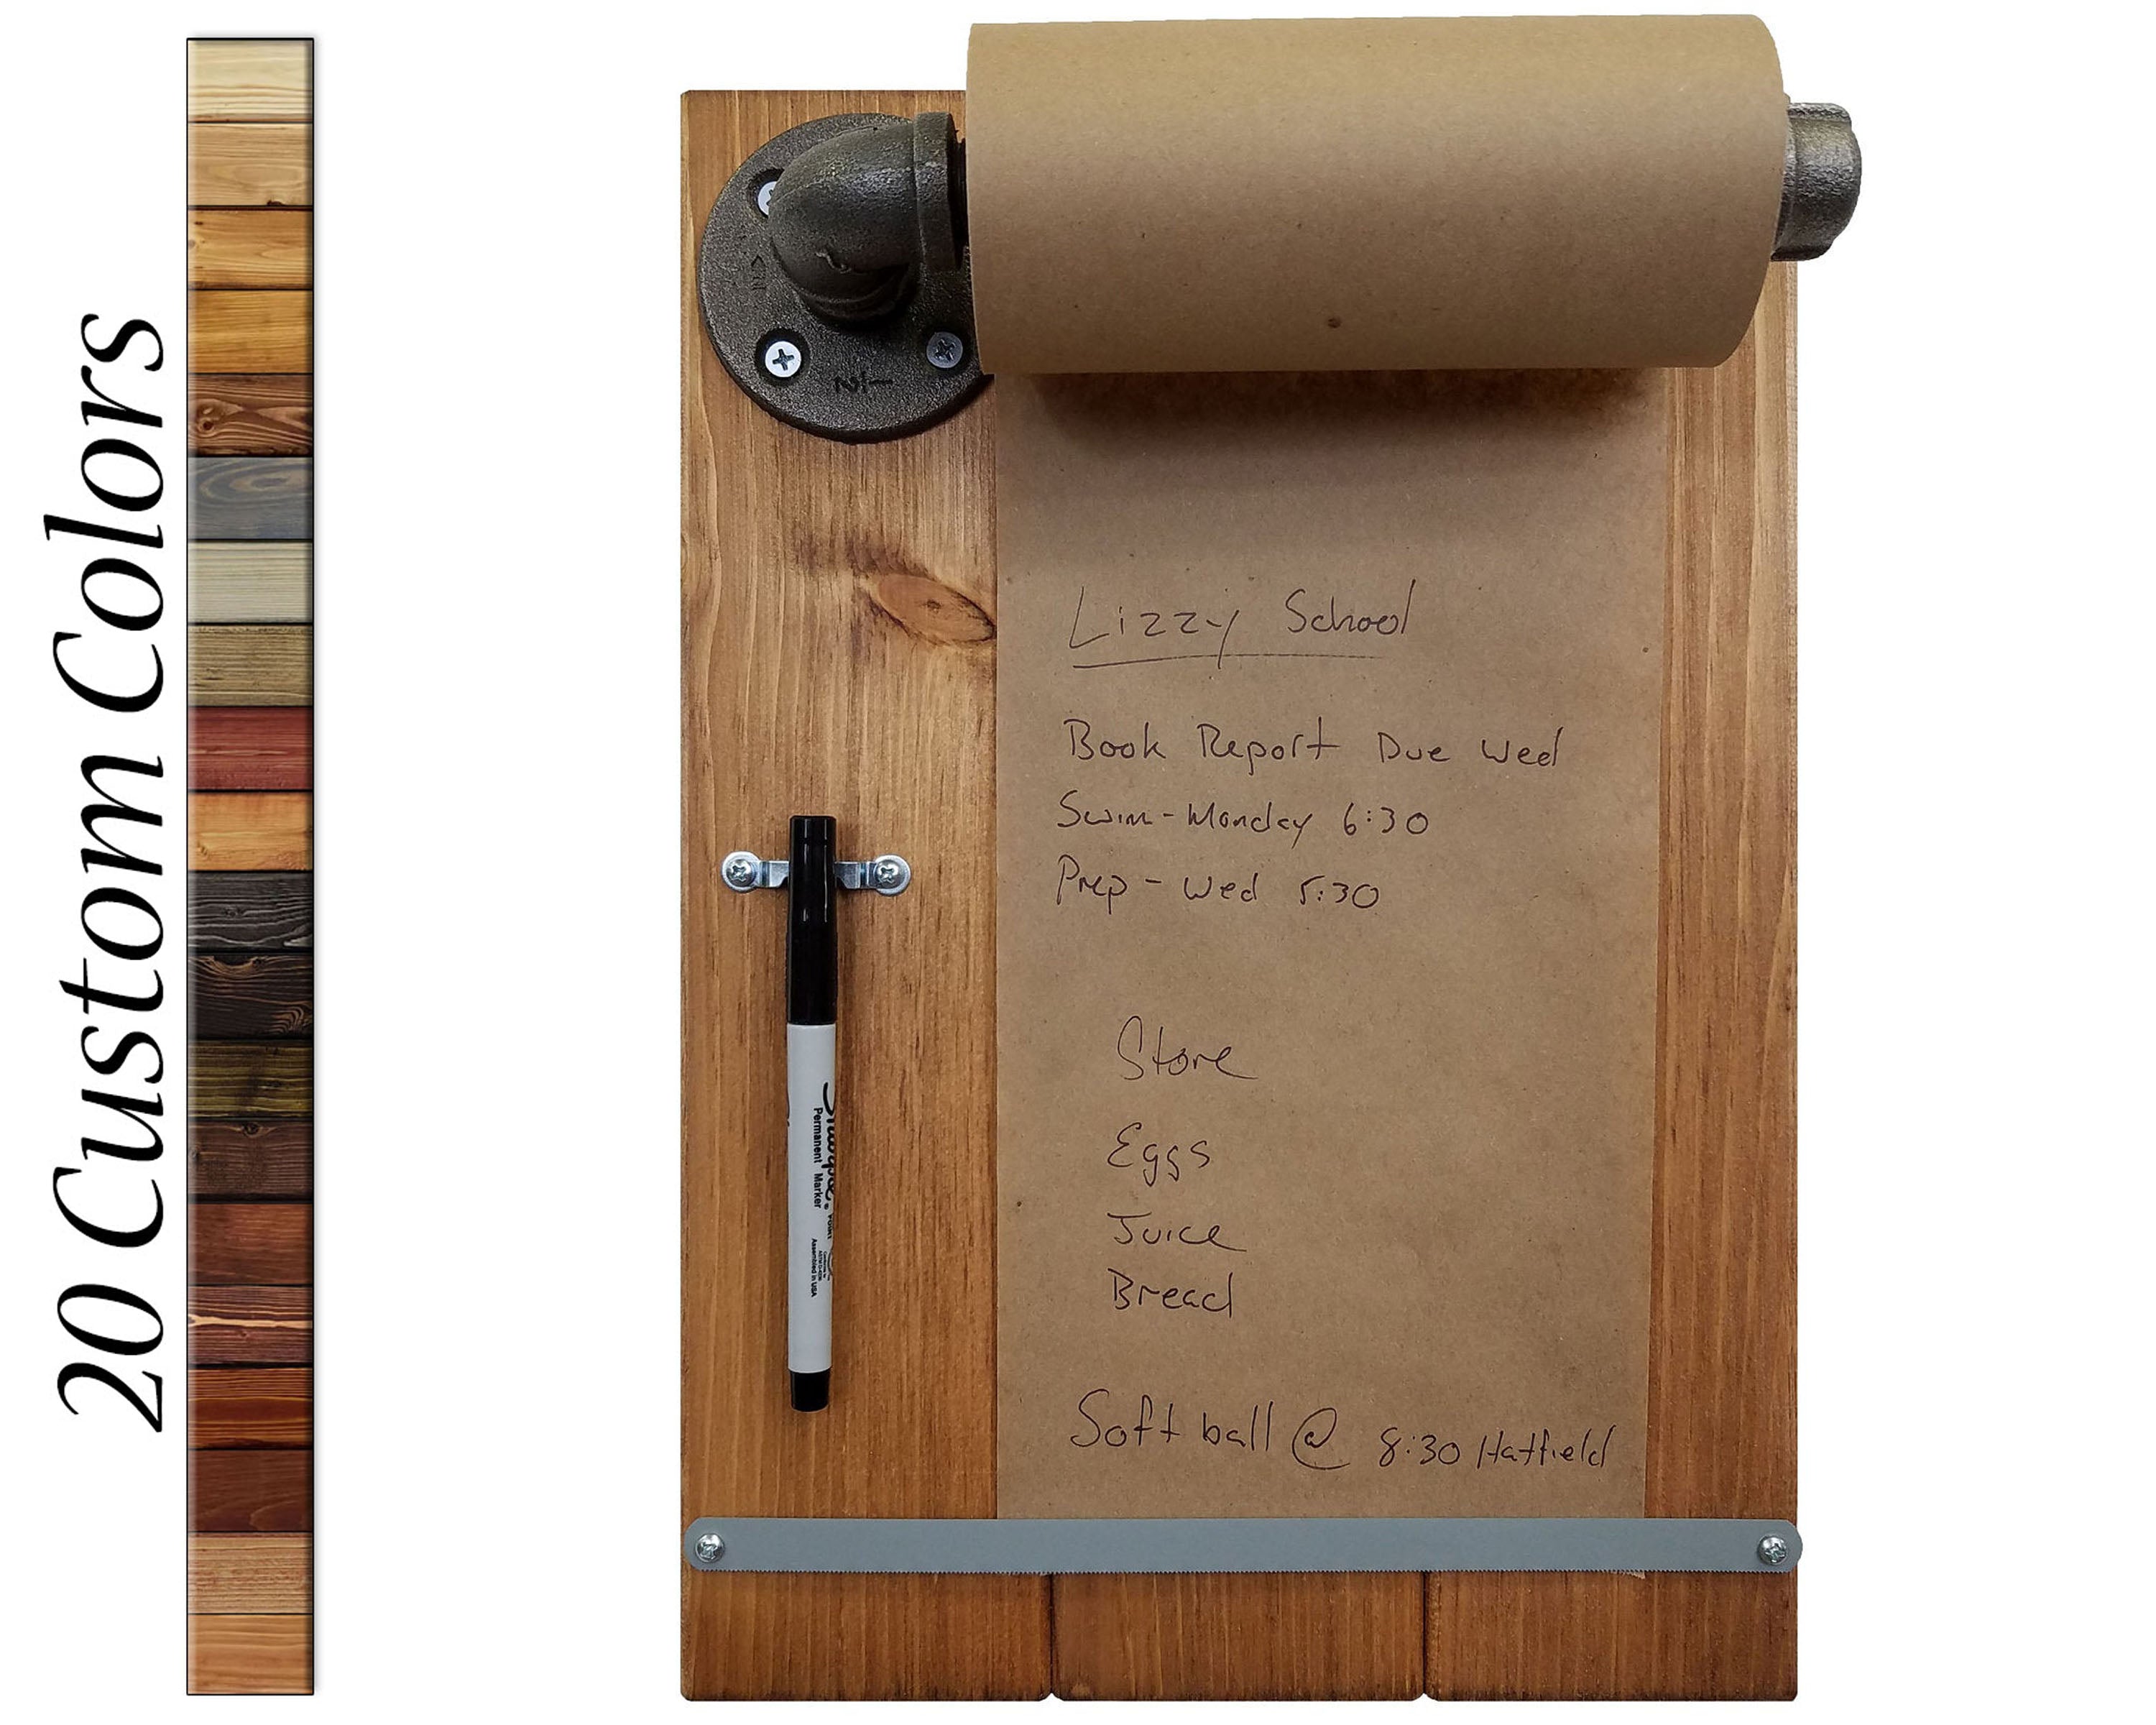 20 Custom Colors
1/2
Lizzy School
Book Report Due Wed
Swim - Monday 6:30
Prep - Wed 5:30
Store
Eggs
Juice
Bread
Softball @ 8:30 Hatfield
Sharpie
Permanent Marker
Assembled in USA